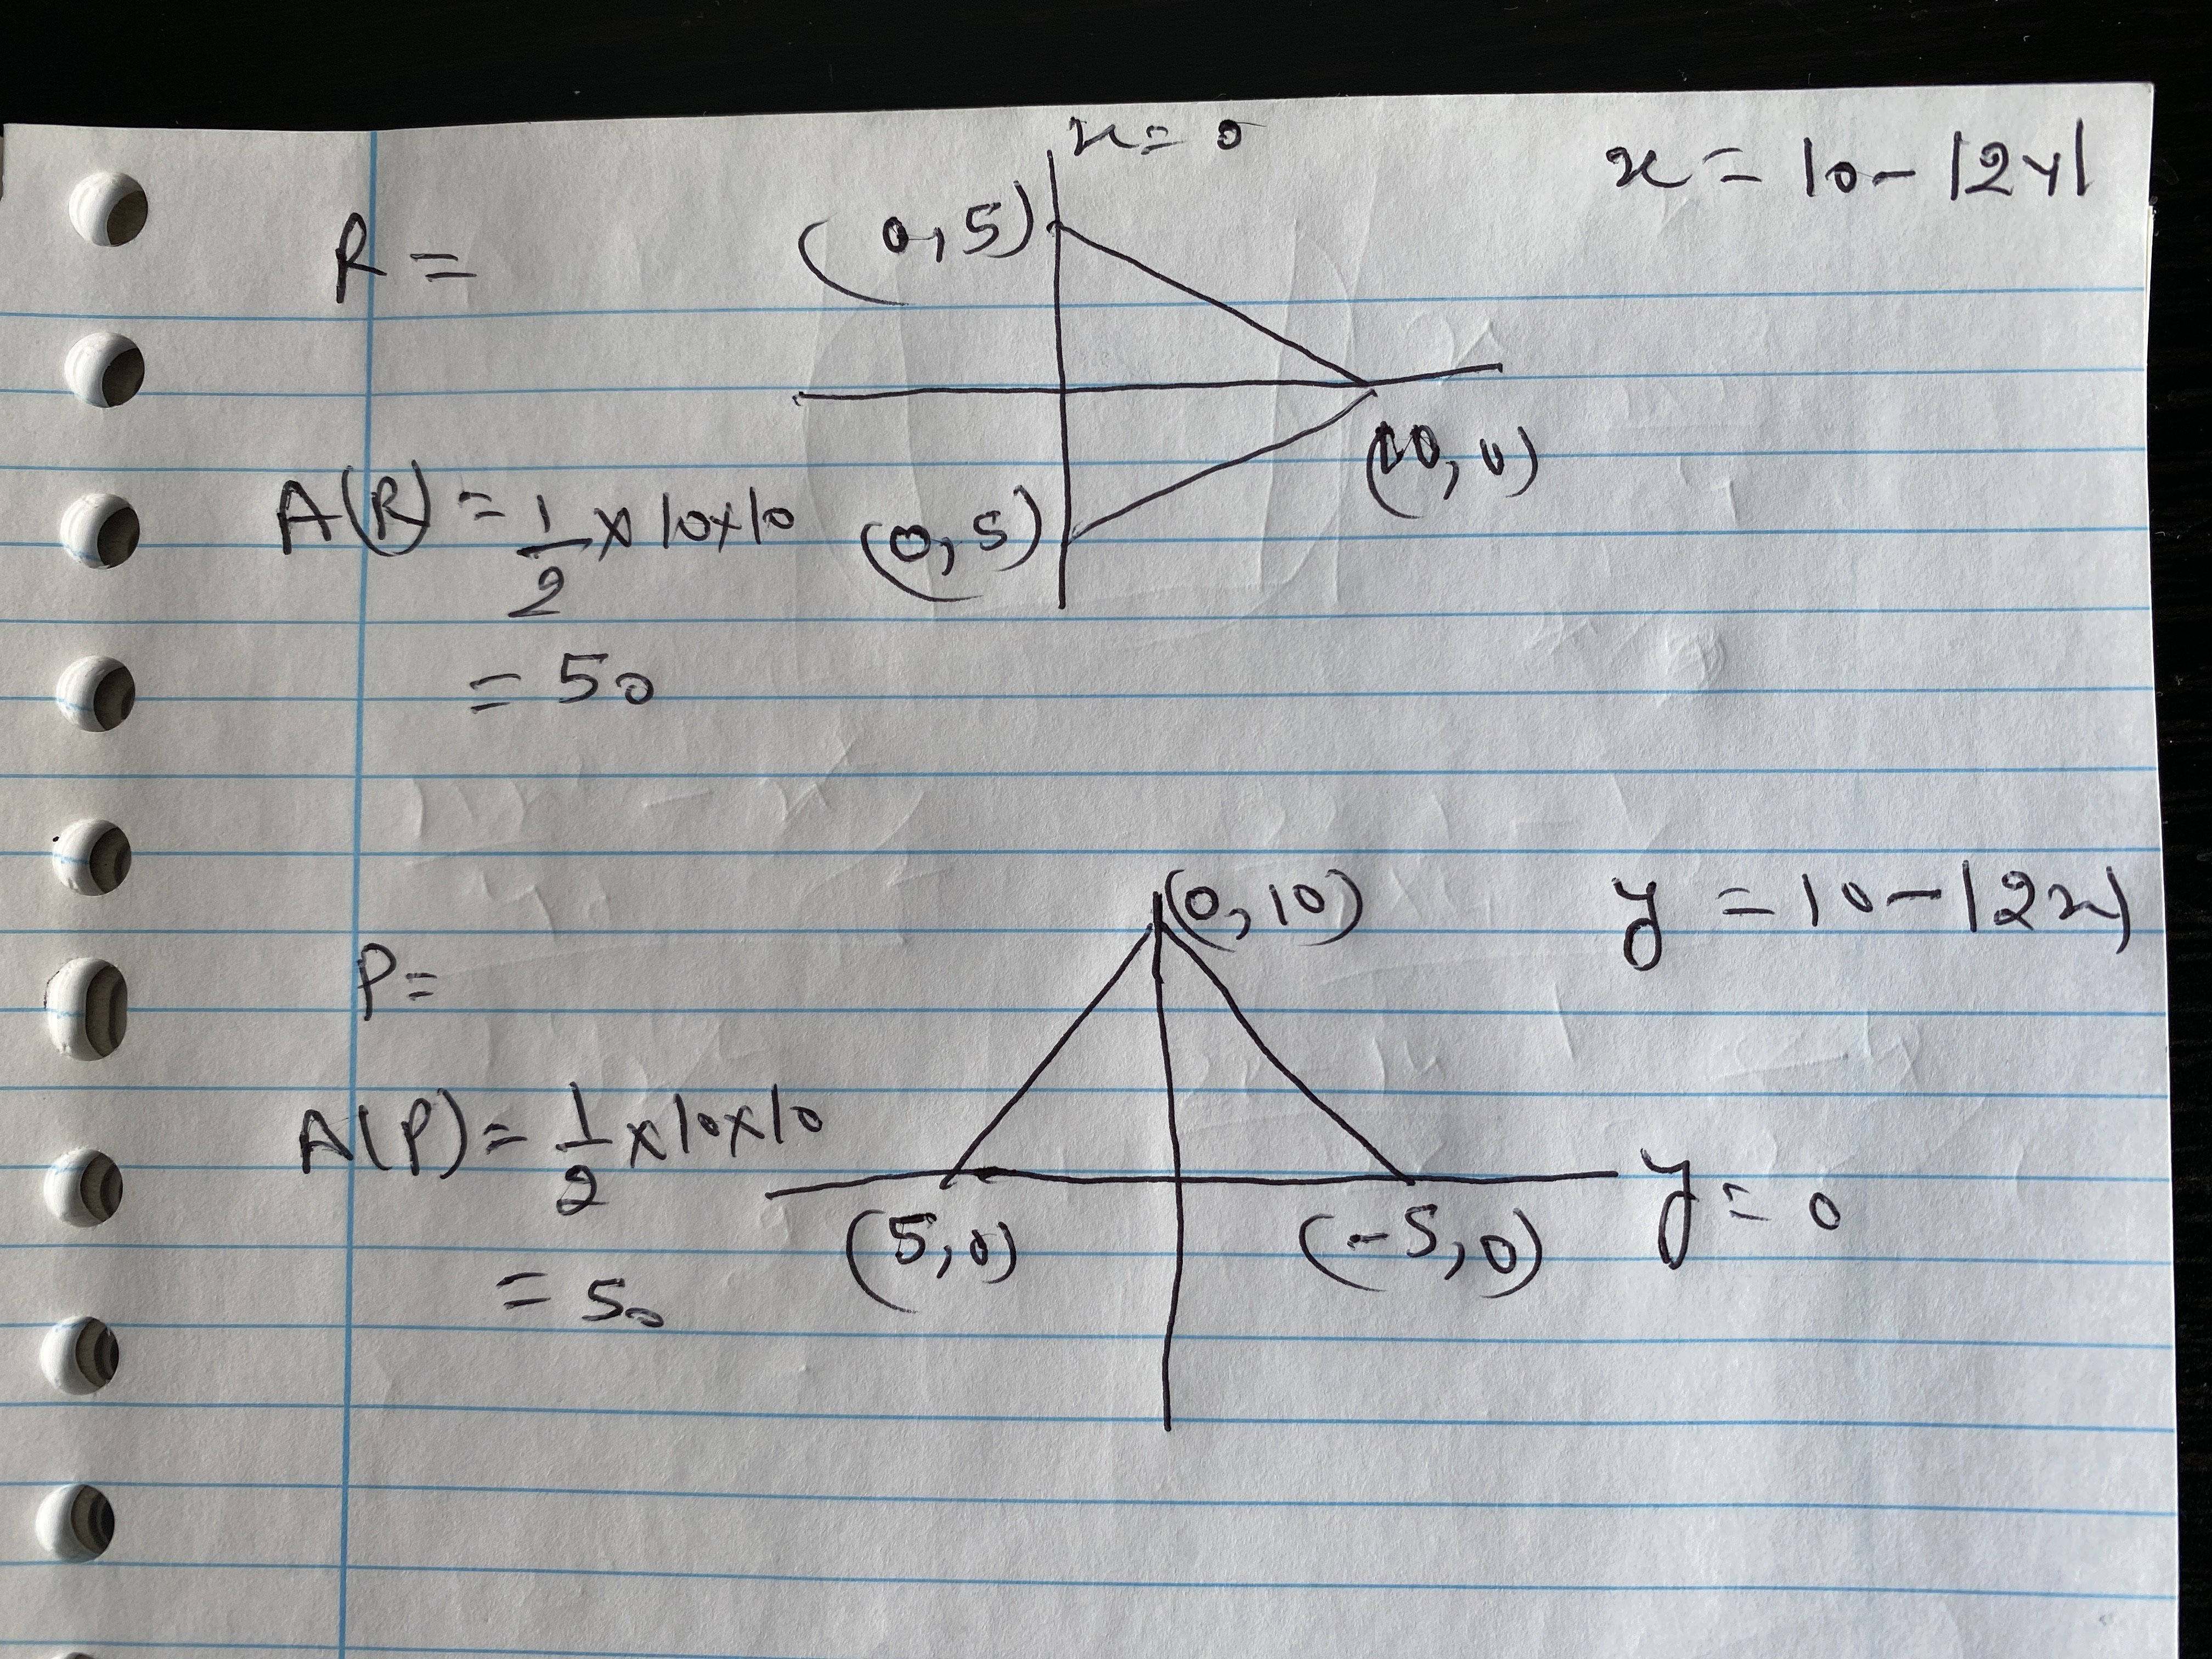 x = 0
x = 10 - |2y|
R =
(0, 5)
(10, 0)
A(R) = 1/2 × 10 × 10
(0, 5)
= 50
(0, 10)
y = 10 - |2x|
P =
A(P) = 1/2 × 10 × 10
y = 0
(5, 0)
(-5, 0)
= 50